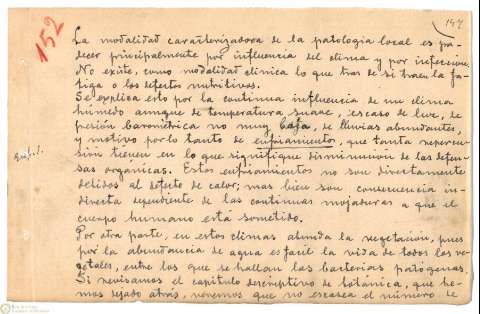 152
152
La modalidad caracterizadora de la patologia local es pa-
decer principalmente por influencia del clima y por infeccion.
No existe, como modalidad clinica lo que tras de si traen la fa-
tiga o los defectos nutritivos.
Se explica esto por la continua influencia de un clima
húmedo aunque de temperatura suave, escaso de luz, de
presión barométrica no muy baja, de lluvias abundantes,
y motivo por lo tanto de enfriamientos, que tanta repercu-
sión tienen en lo que signifique disminucion de las defen-
sas orgánicas. Estos enfriamientos no son directamente
debidos al defecto de calor, mas bien son consecuencia in-
directa dependiente de las continuas mojaduras a que el
cuerpo humano está sometido.
Por otra parte, en estos climas abunda la vegetación, pues
por la abundancia de agua es facil la vida de todos los ve-
getales, entre los que se hallan las bacterias patógenas.
Si revisamos el capitulo descriptivo de botánica, que he-
mos dejado atrás, veremos que no escasea el número de